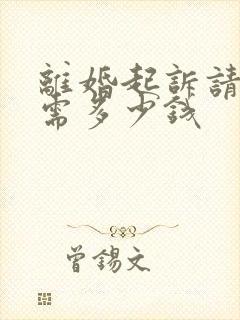 離婚起訴請
需多少钱
曾錫文